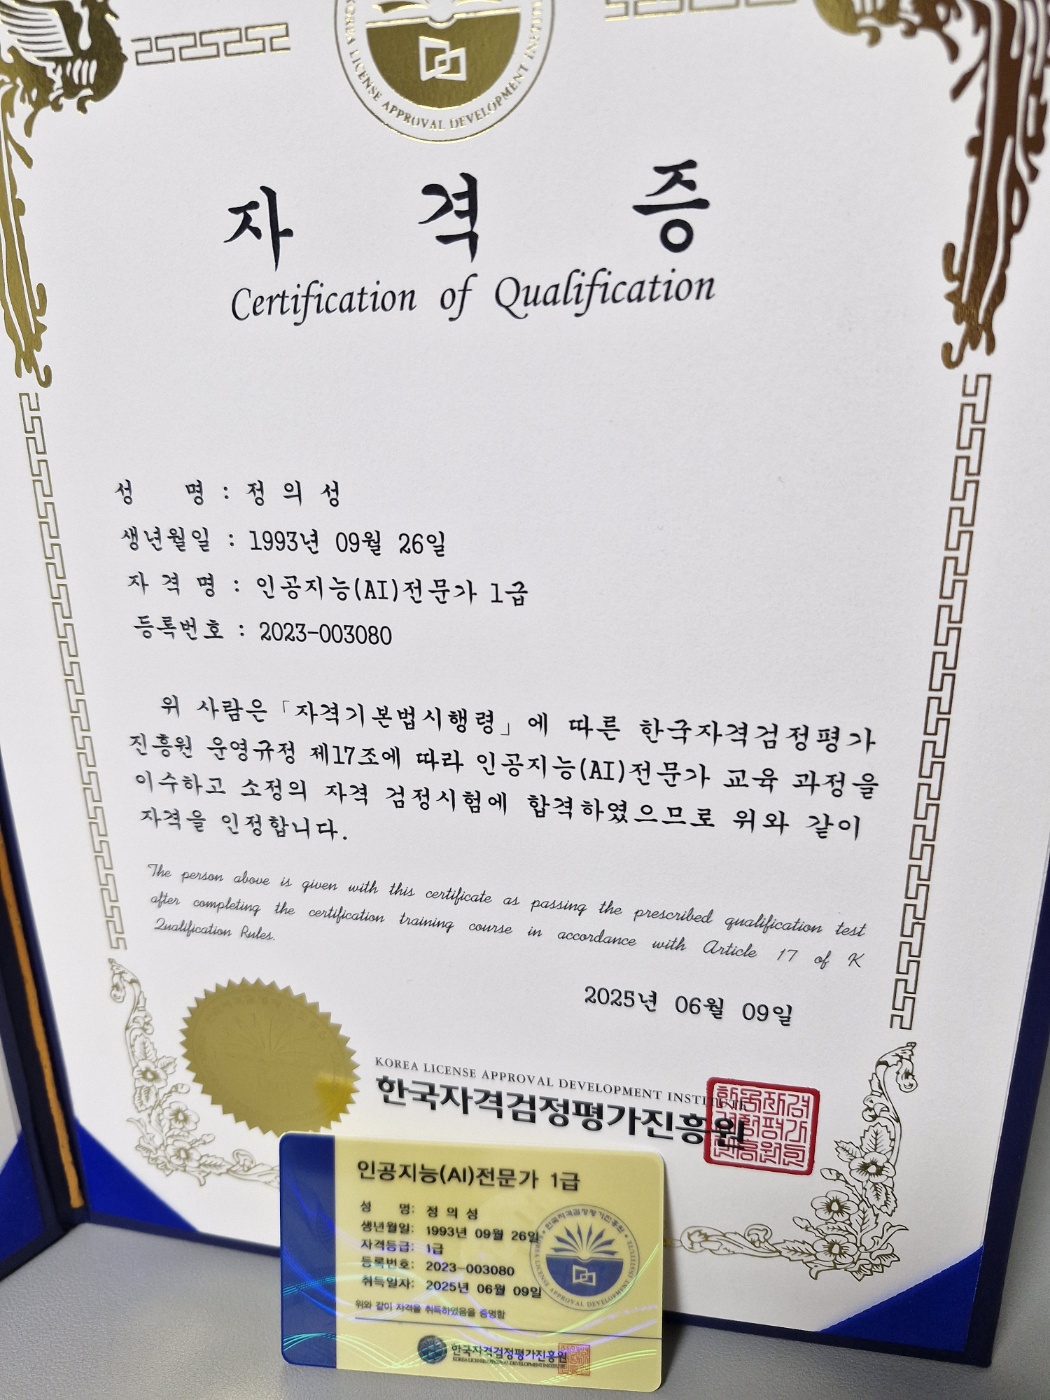 KOREA LICENSE APPROVAL DEVELOPMENT INSTITUTE
자 격 증
Certification of Qualification
성 명 : 정 의 성
생년월일 : 1993년 09월 26일
자 격 명 : 인공지능(AI)전문가 1급
등록번호 : 2023-003080
위 사람은 「자격기본법시행령」에 따른 한국자격검정평가
진흥원 운영규정 제17조에 따라 인공지능(AI)전문가 교육 과정을
이수하고 소정의 자격 검정시험에 합격하였으므로 위와 같이
자격을 인정합니다.
The person above is given with this certificate as passing the prescribed qualification test
after completing the certification training course in accordance with Article 17 of K
Qualification Rules.
2025년 06월 09일
KOREA LICENSE APPROVAL DEVELOPMENT INSTITUTE
한국자격검정평가진흥원
인공지능(AI)전문가 1급
성 명: 정 의 성
생년월일: 1993년 09월 26일
자격등급: 1급
등록번호: 2023-003080
취득일자: 2025년 06월 09일
위와 같이 자격을 취득하였음을 증명함
한국자격검정평가진흥원